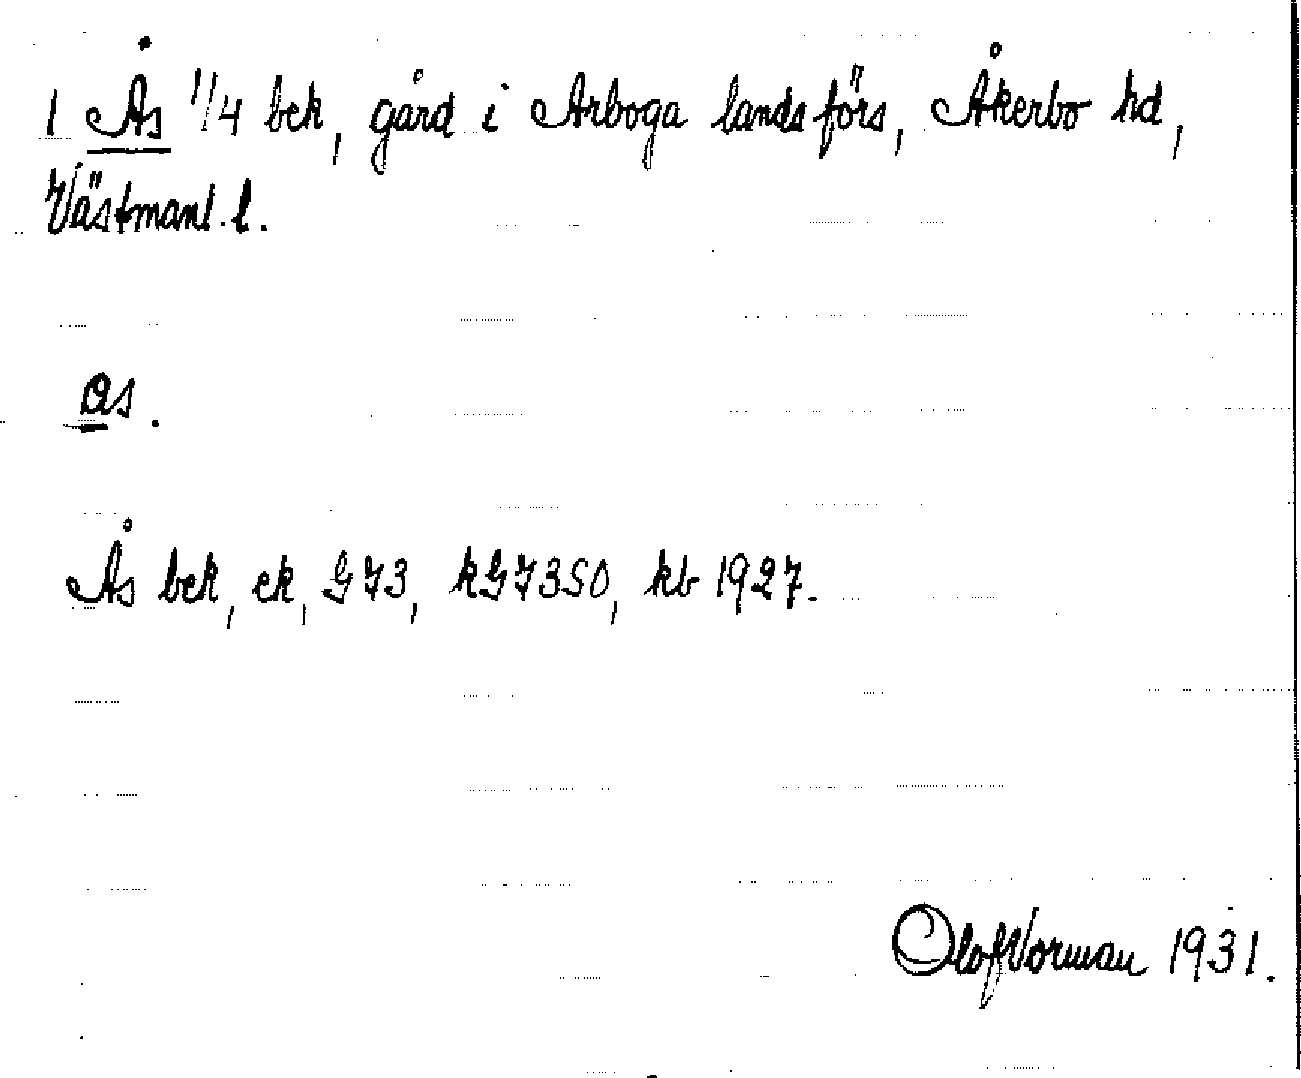 1 Ås 1/4 bek, gård i Arboga landsförs, Åkerbo hd,
Västmanl. l.
ɑs.
Ås bek, ek, GJ3, kGJ350, kb 1927.
Olof Vorman 1931.